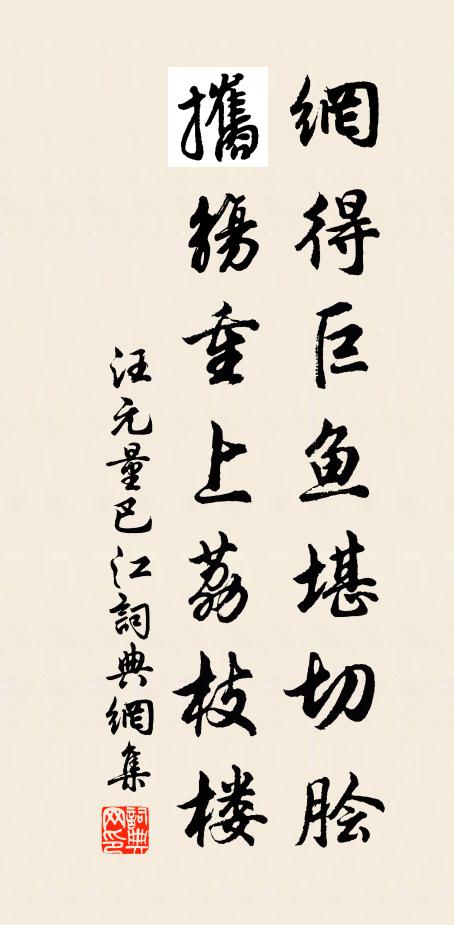 網得巨鱼堪切脍
攜觴重上荔枝楼
汪元量巴江詞典網集
詞典网印